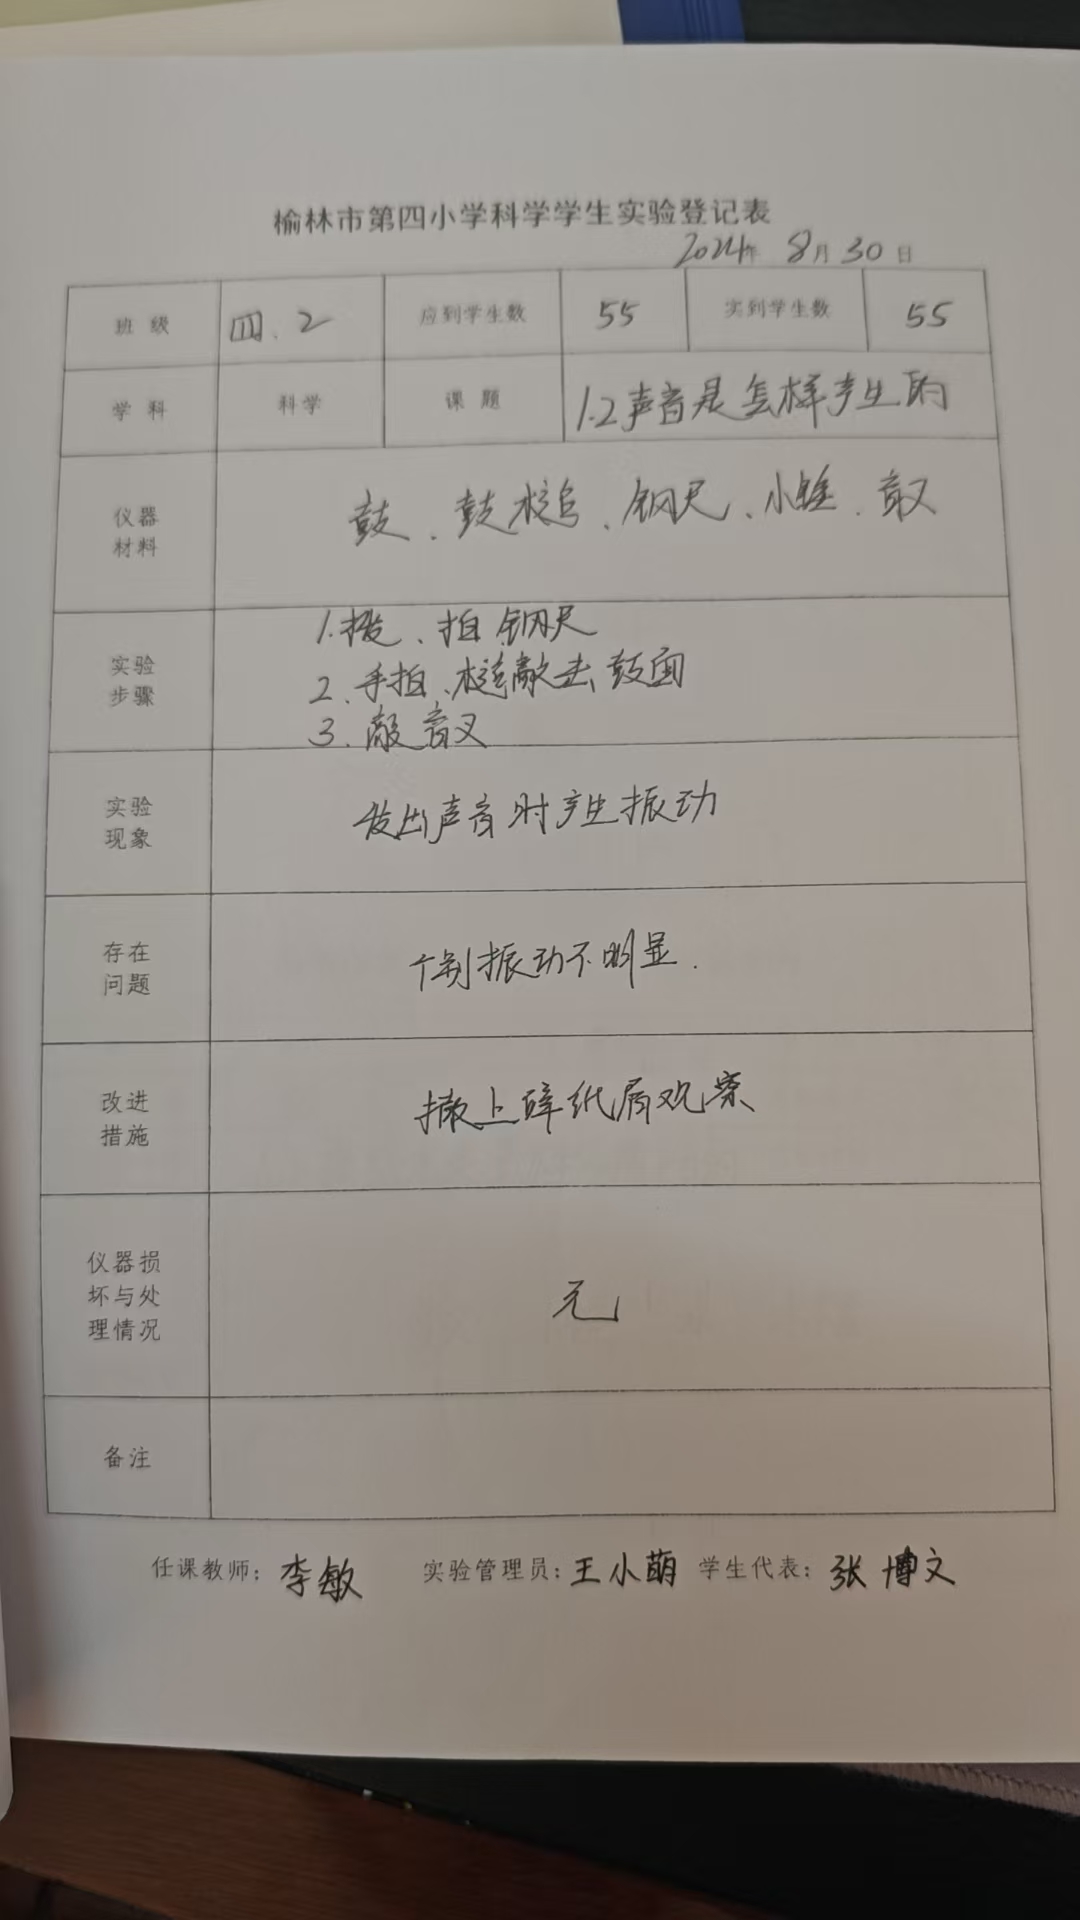 榆林市第四小学科学学生实验登记表
2024年 8月30日
班 级 四.2 应到学生数 55 实到学生数 55
学 科 科学 课 题 1.2声音是怎样产生的
仪器
材料
鼓、鼓槌、钢尺、小锤、音叉
实验
步骤
1.拨、拍钢尺
2.手拍、槌敲击鼓面
3.敲音叉
实验
现象
发出声音时产生振动
存在
问题
个别振动不明显.
改进
措施
撒上碎纸屑观察
仪器损
坏与处
理情况
无
备注
任课教师：李敏 实验管理员：王小萌 学生代表：张博文